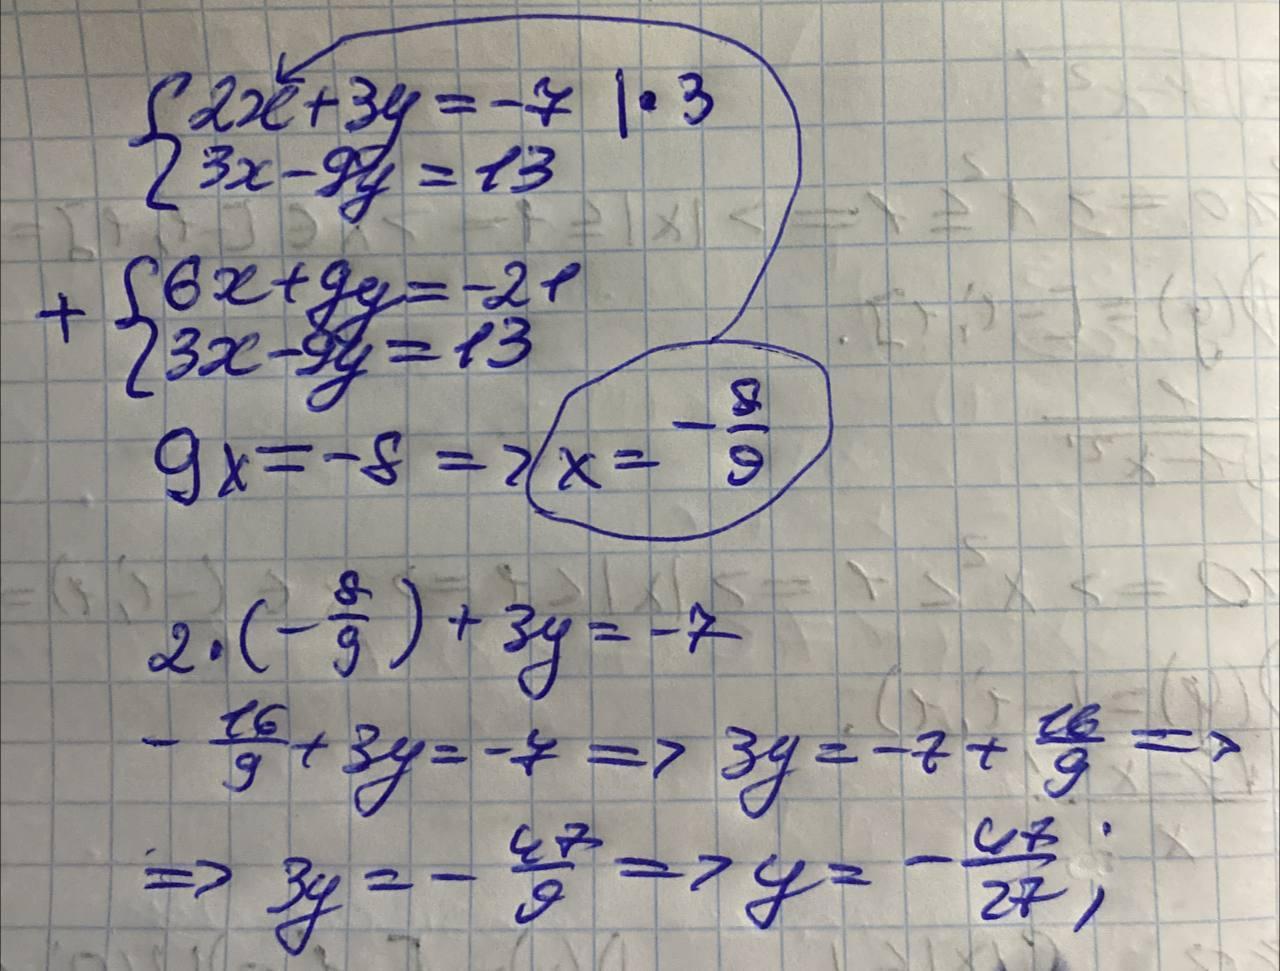 {2x+3y=-7 |•3
{3x-9y=13
+ {6x+9y=-21
{3x-9y=13
9x=-8 => x=-8/9
2•(-8/9)+3y=-7
-16/9+3y=-7 => 3y=-7+16/9 =>
=> 3y=-47/9 => y=-47/27;